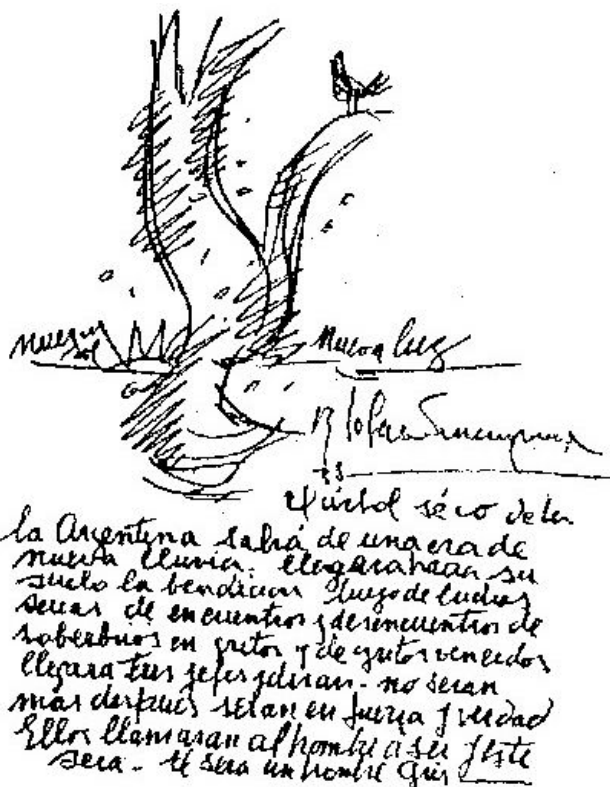 nuevo sol
nueva luz
B Solari Parravicini
El árbol seco de la
la Argentina sabrá de una era de
nueva lluvia. llegará hacia su
suelo la bendición luego de luchas
serias de encuentros y desencuentros de
soberbios en gritos y de gritos vencidos
llegara tres jefes y dirán - no seran
mas después seran en fuerza y verdad
Ellos llamaran al hombre a ser y este
sera - él sera un hombre Gris